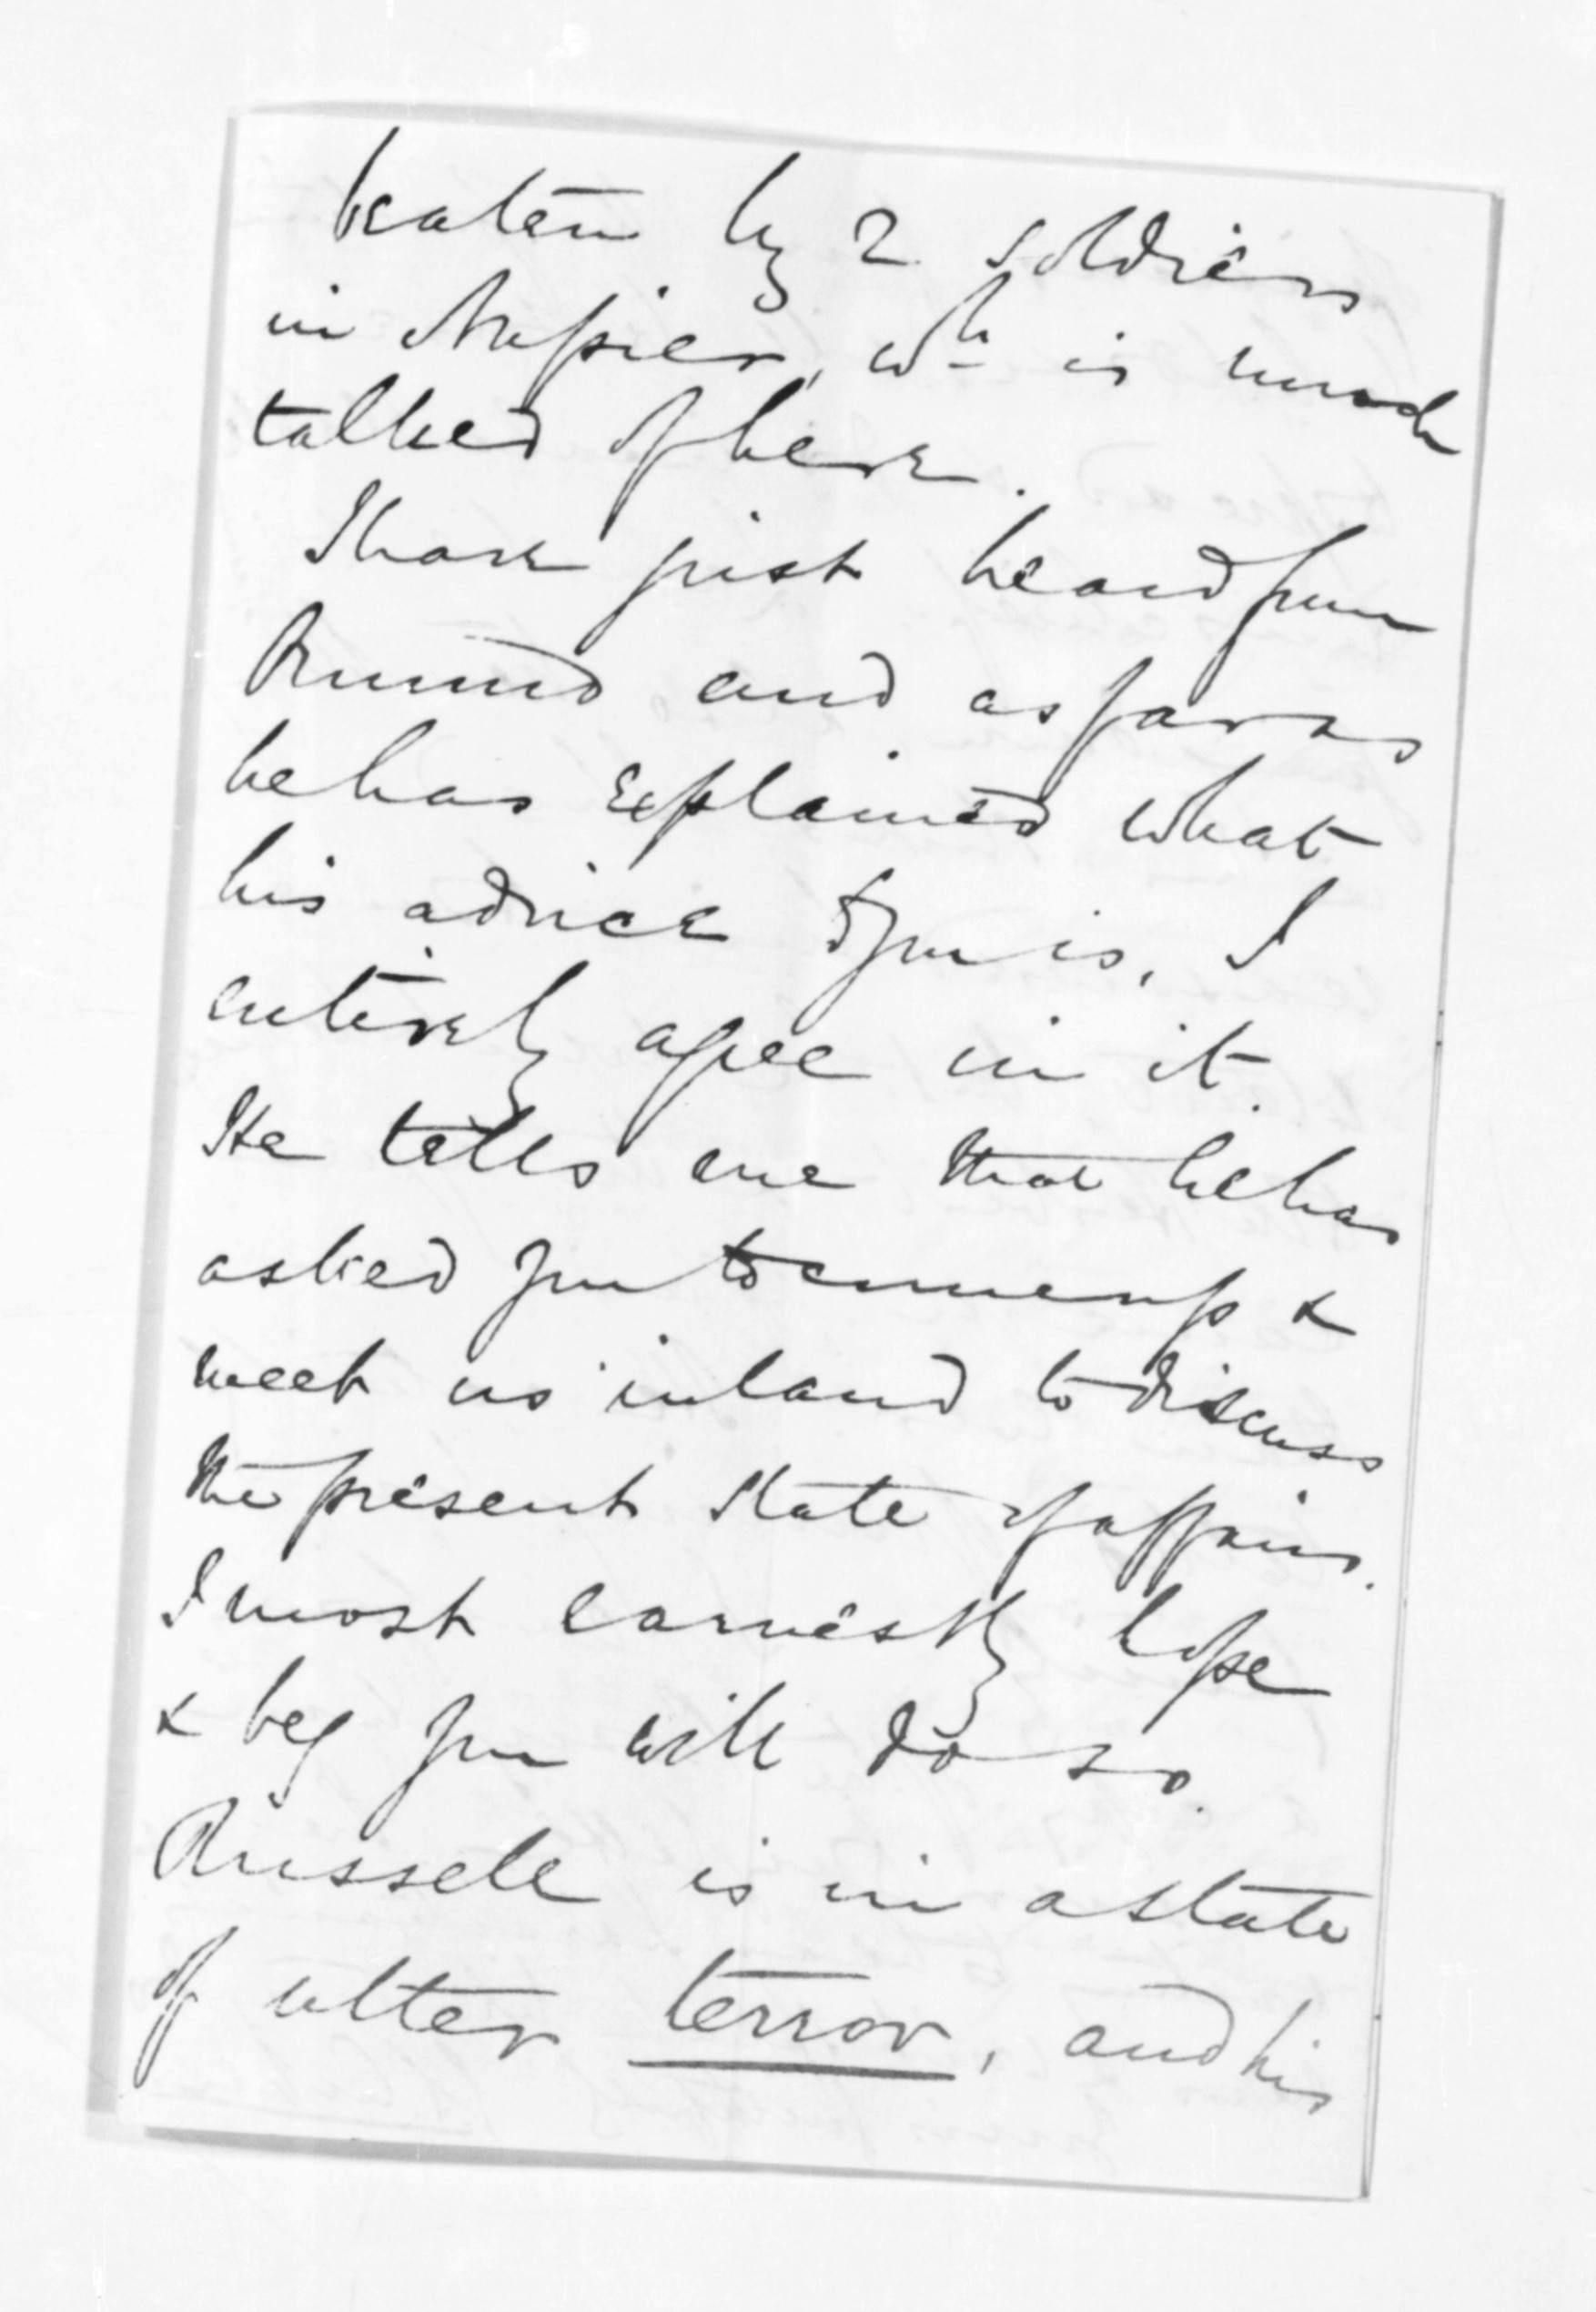 beaten by 2 soldiers
in Napier, wh is much
talked of here.
I have just heard from
Ormond and as far as
he has explained what
his advice to you is, I
entirely agree in it.
He tells me that he has
asked you to come up &
meet us inland to discuss
the present state of affairs.
I most earnestly hope
& beg you will do so.
Russell is in a state
of utter terror, and his